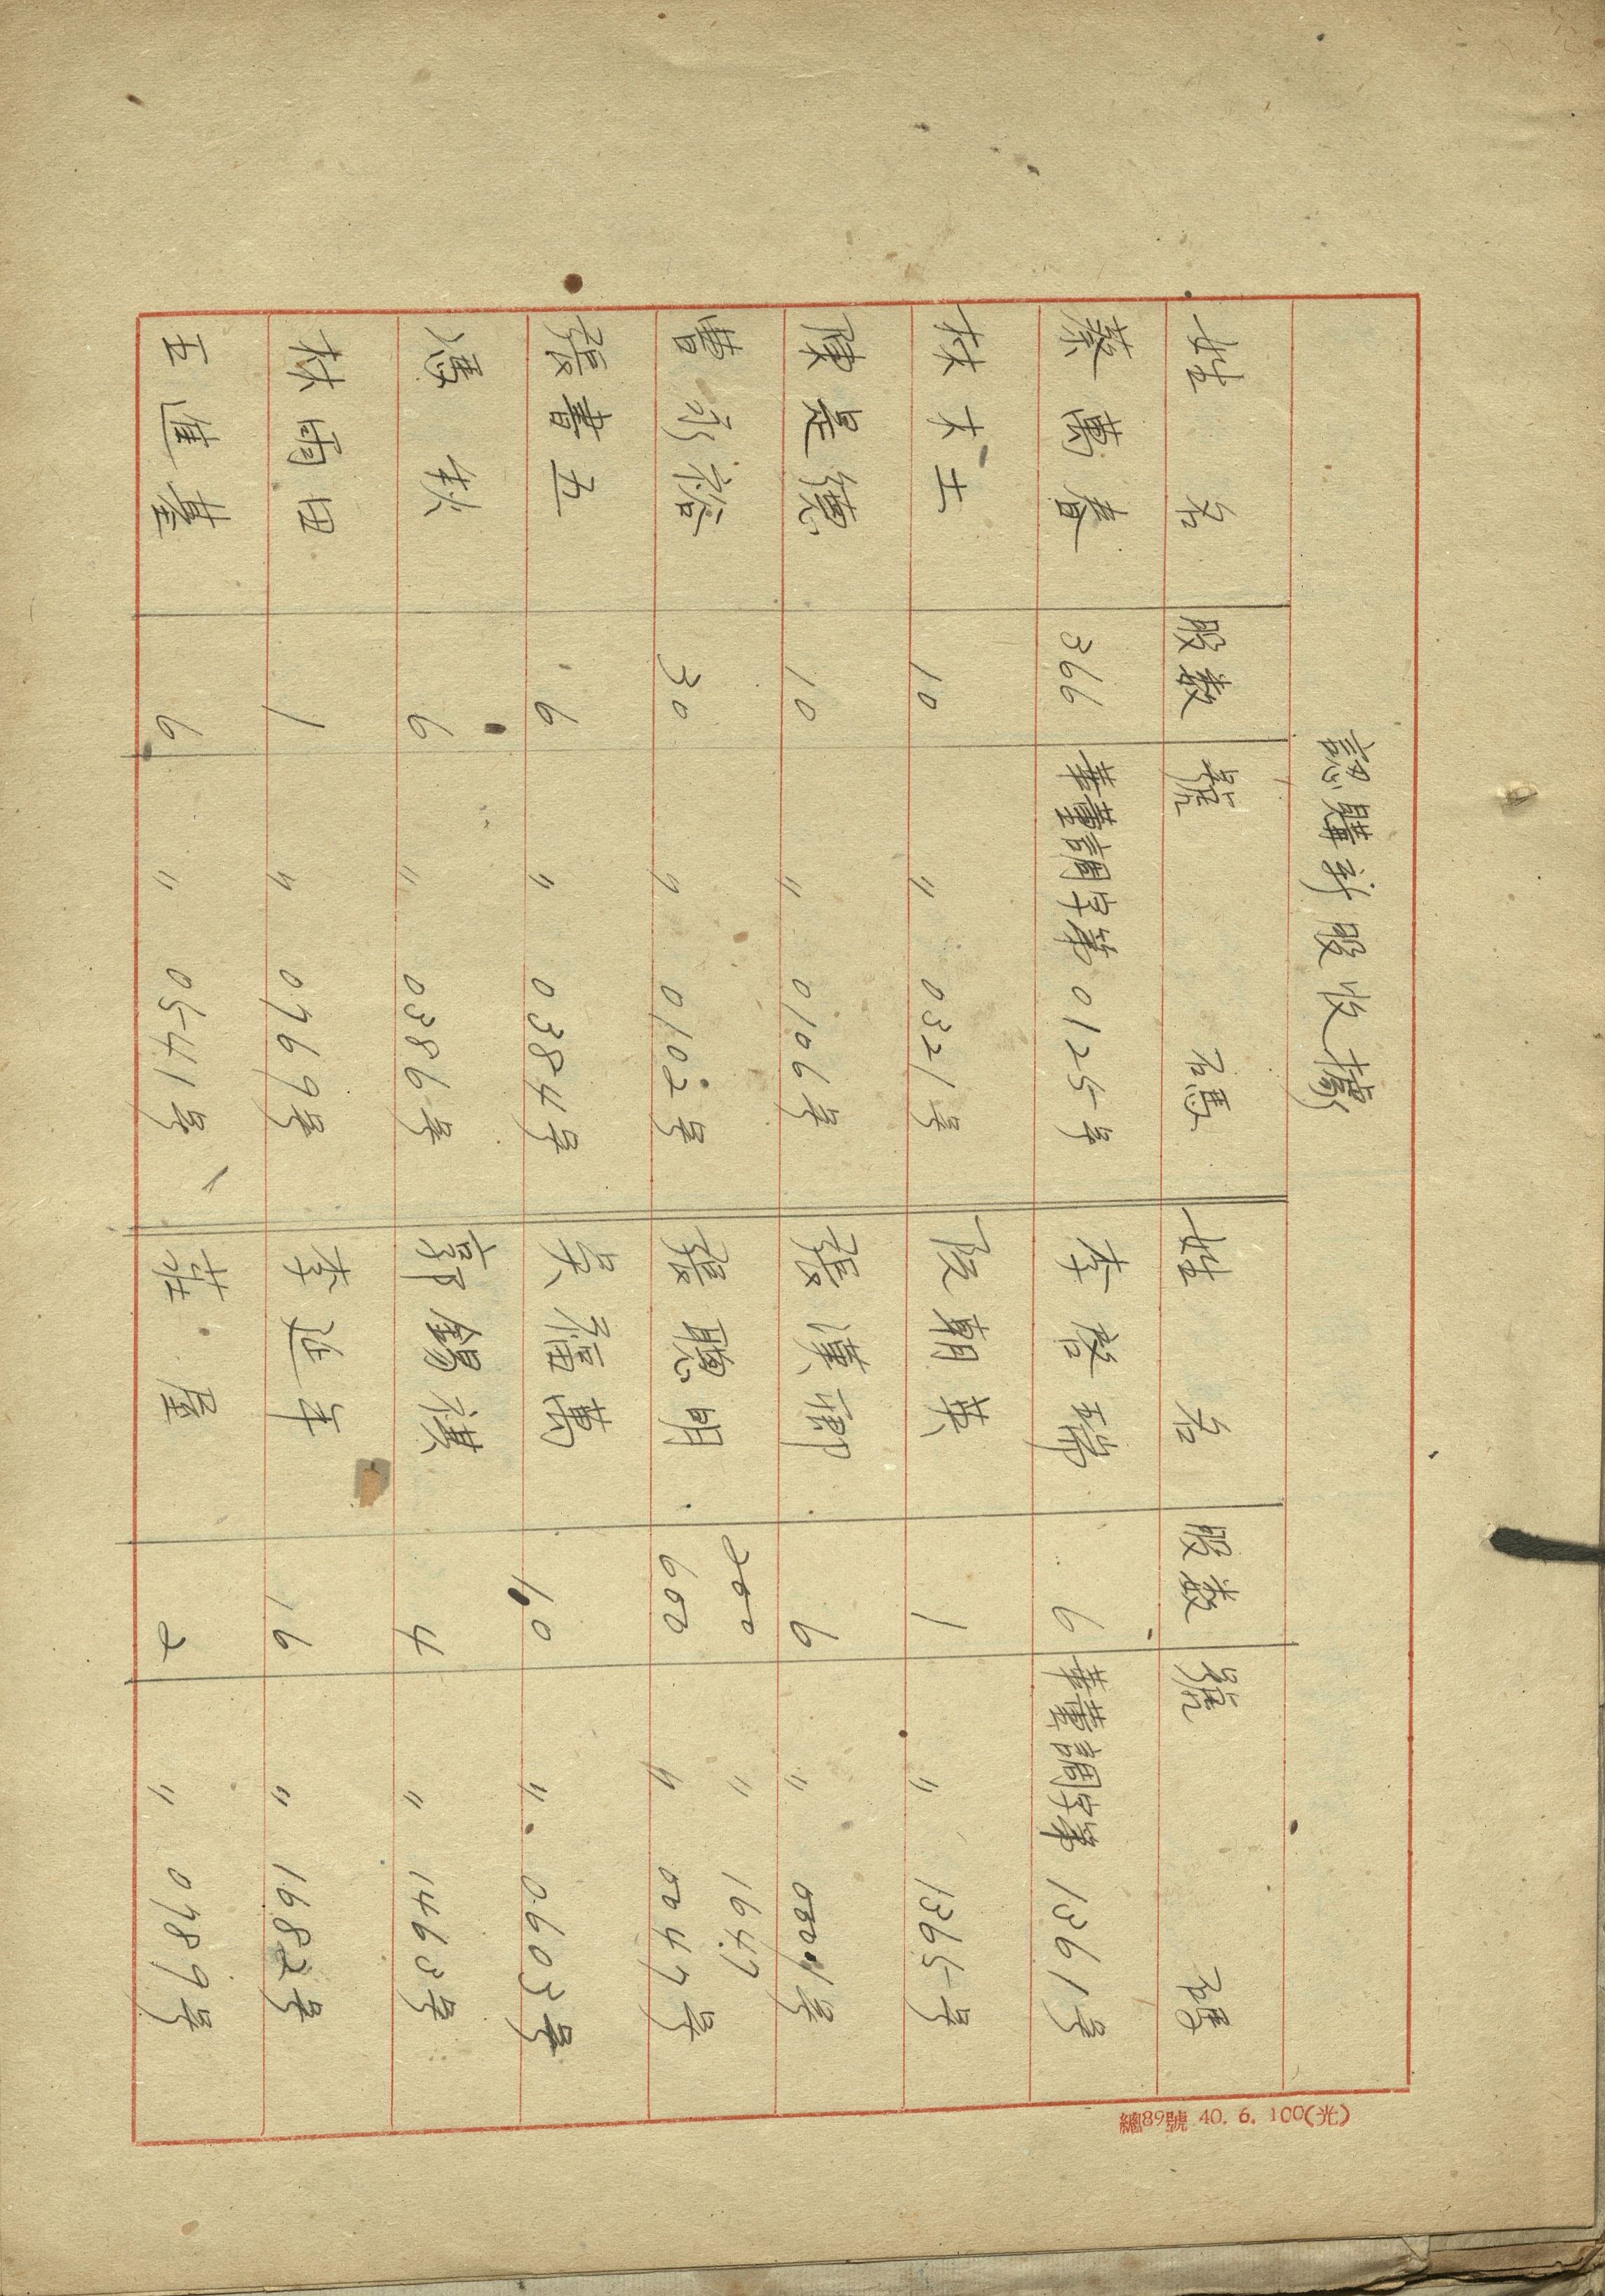 認購新股收據
姓名 股数 號碼 姓名 股数 號碼
蔡萬春 366 華臺調字第0125号 李啓瑞 6 華臺調字第1361号
林木土 10 〃 0321号 阮朝英 1 〃 1365号
陳是德 10 〃 0106号 張漢卿 6 〃 0001号
2000 〃 1647
曹永裕 30 〃 0102号 張聰明 600 〃 0047号
張書五 6 〃 0384号 吳福萬 10 〃 0603号
馮秋 6 〃 0386号 郭錫祺 4 〃 1463号
林雨田 1 〃 0769号 李延年 16 〃 1682号
王進益 6 〃 0541号 莊屋 2 〃 0789号
總89號 40. 6. 100(光)